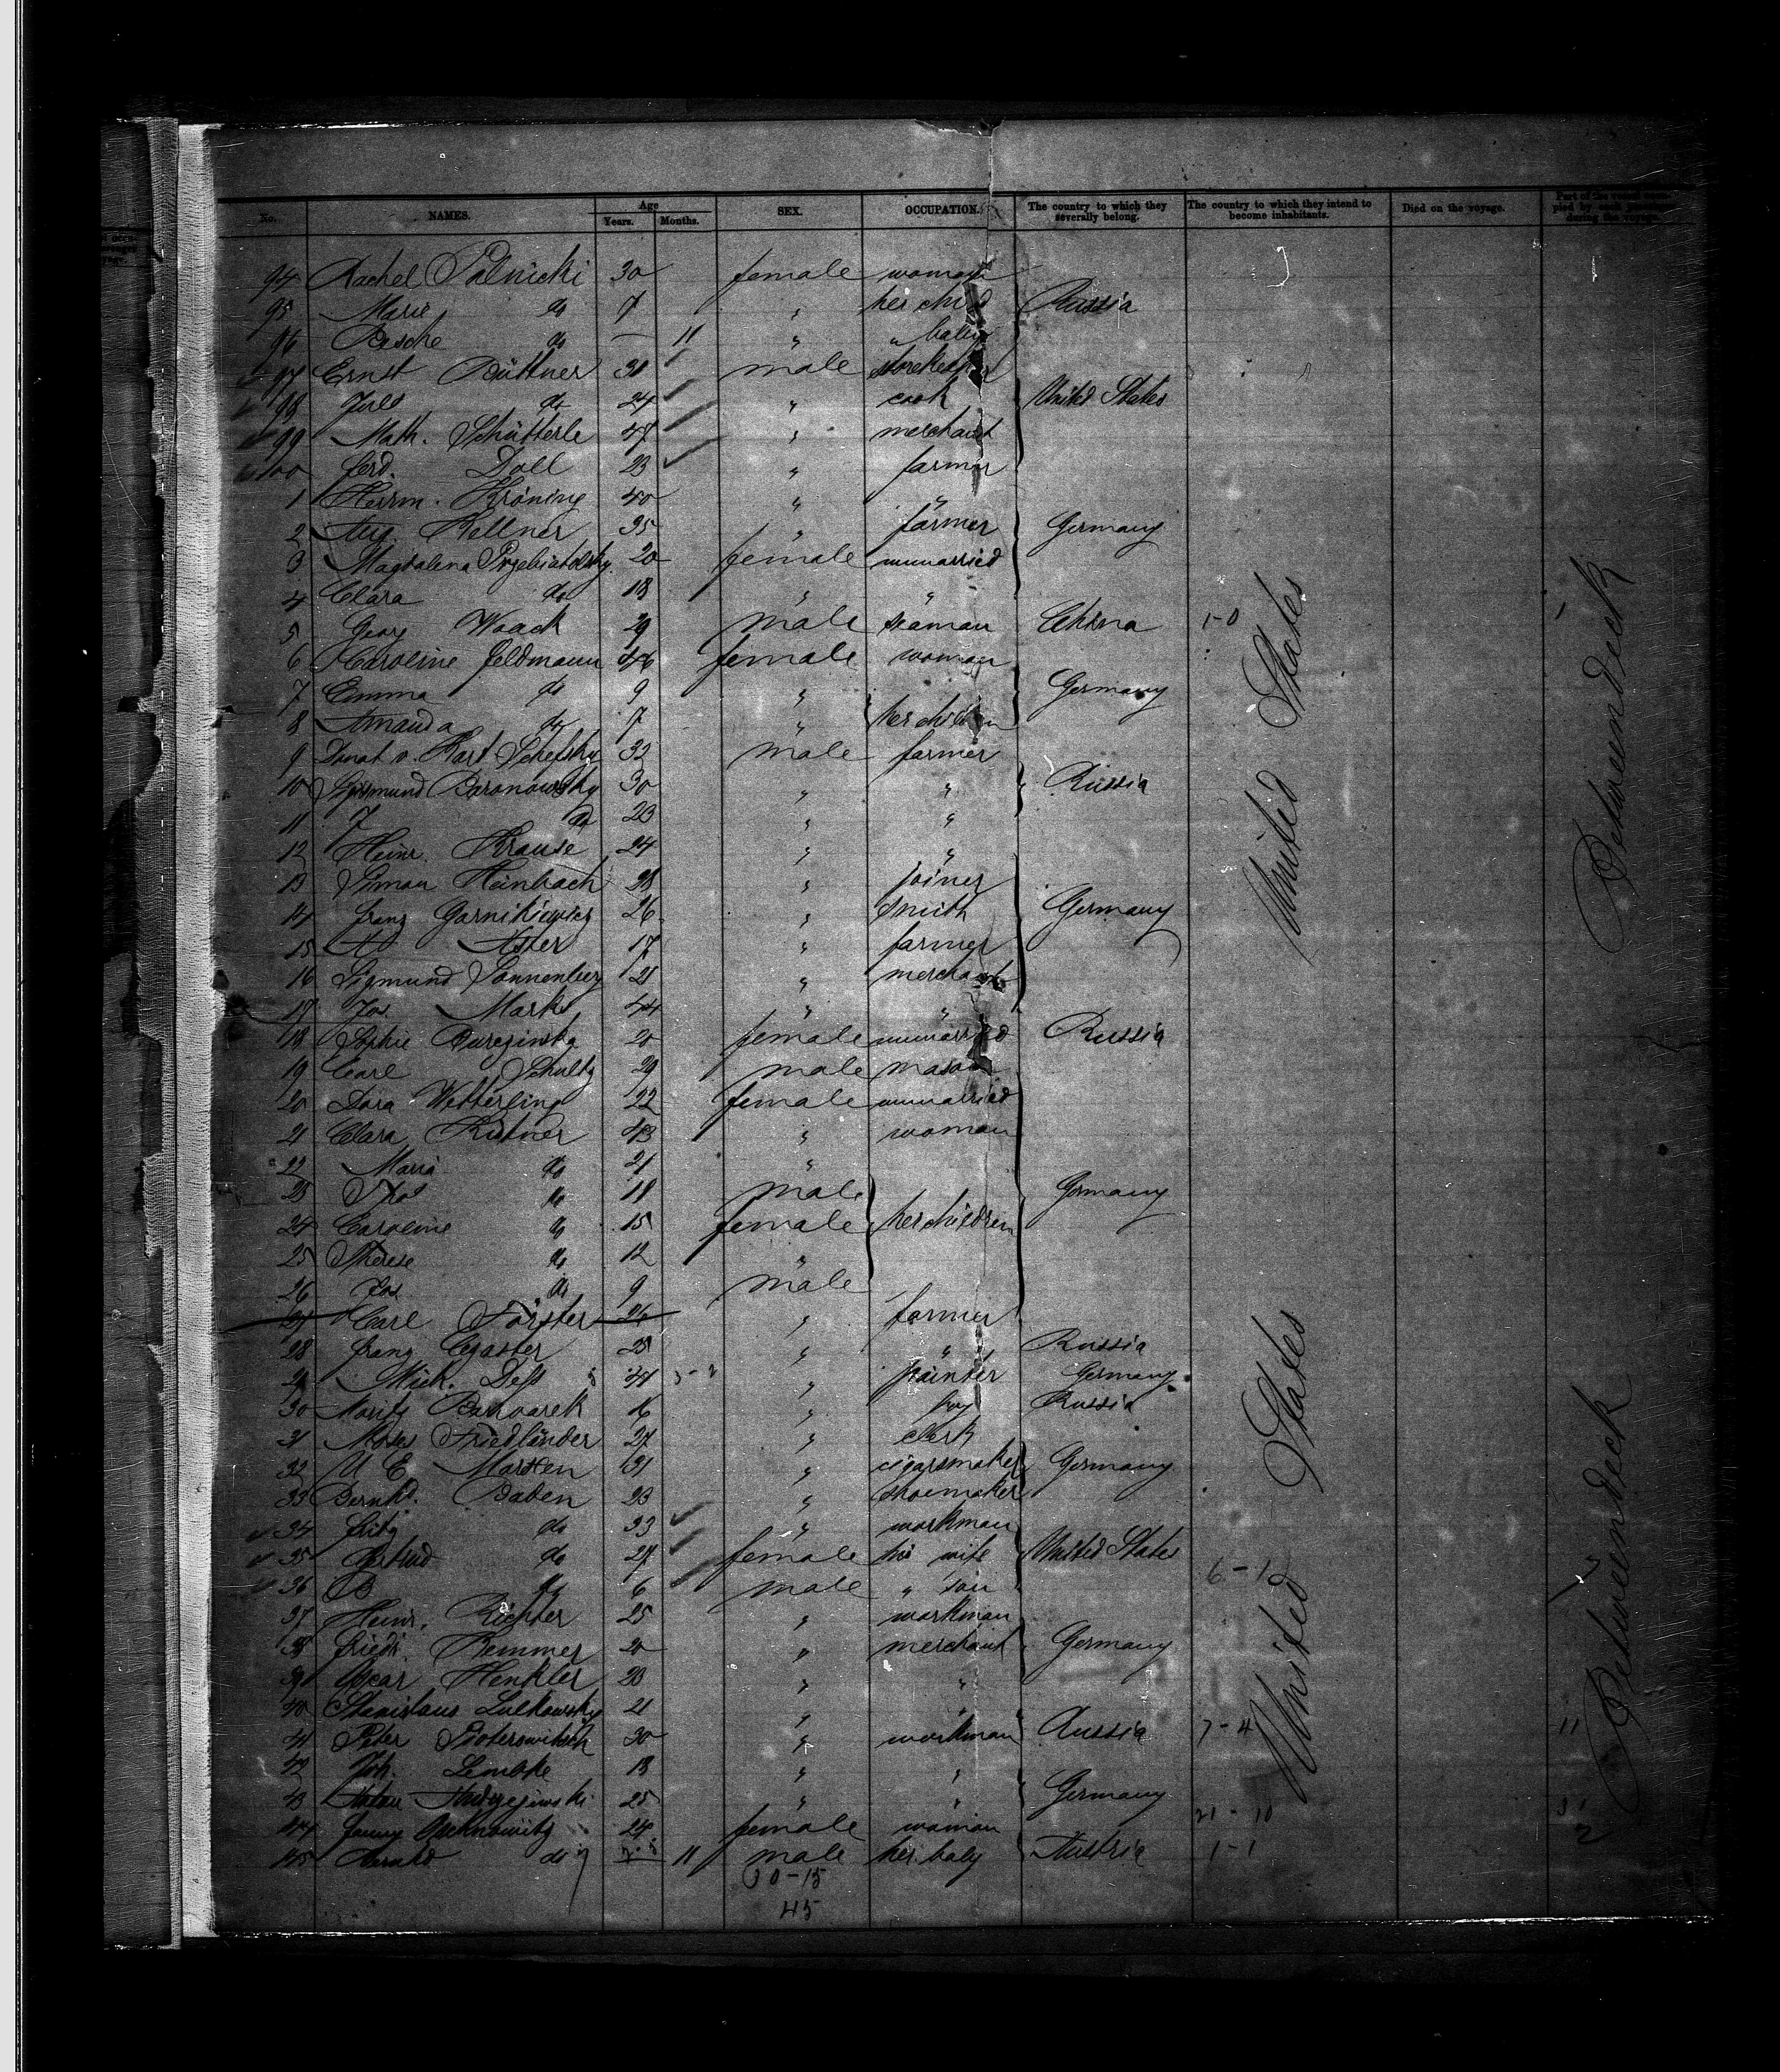 No. NAMES. Age Years. Months. SEX. OCCUPATION. The country to which they severally belong. The country to which they intend to become inhabitants. Died on the voyage. Part of the vessel occupied by each passenger during the voyage.
94 Rachel 30 female woman
95 Marie do 7 " her child Russia
96 Pesche do — 11 " " baby
97 Ernst Büttner 31 male storekeeper
98 do 24 " cook United States
99 Math. Schütterle 47 " merchant
100 Ferd. Doll 23 " farmer
1 Herrm. Kröning 40 " "
2 Aug. Kellner 35 " farmer Germany
3 Magdalena 20 female unmarried
4 Clara do 18 " "
5 Georg Waack 29 male seaman China 1-0
6 Caroline Feldmann 46 female woman
7 Emma do 9 " Germany
8 Amanda do 7 " her children
9 Donat v. 32 male farmer
10 Sigismund Baronowsky 30 " " Russia
11 J do 23 " "
12 Heinr. Krause 24 " "
13 Simon Heinbach 28 " joiner
14 Franz Garnikiewicz 26 " smith Germany
15 A Aster 17 " farmer
16 Sigmund Sonnenberg 21 " merchant
17 Jos. Marks 44 " "
18 Sophie 20 female unmarried Russia
19 Carl Schultz 29 male mason
20 Dora Wetterling 22 female unmarried
21 Clara Kistner 43 " woman
22 Maria do 21 "
23 do 18 male Germany
24 Caroline do 15 female her children
25 Therese do 12 "
26 Jos. do 9 male
27 Carl Förster 26 " farmer
28 Franz Czaster 25 " " Russia
29 Mich. Dess 34 " painter Germany
30 Moritz 16 " boy Russia
31 Moses Friedländer 27 " clerk
32 U E Marxen 31 " cigarsmaker Germany
33 Bernhd. Baben 23 " shoemaker
34 Fritz do 33 " workman
35 Gertrud do 27 female his wife United States
36 B do 6 male " son 6-1
37 Heinr. Richter 25 " workman
38 Friedr. Remmer 20 " merchant Germany
39 Oscar Henkler 23 " "
40 Stanislaus Lulkowsky 21 " "
41 Peter 30 " workman Russia 7-4 11
42 Joh. Lembke 18 " "
43 Anton 25 " " Germany
44 Fanny 24 female woman 21-10
45 Arnold do 11 male her baby Austria 1-1
30-15
45
United States
United States
Betweendeck
Betweendeck